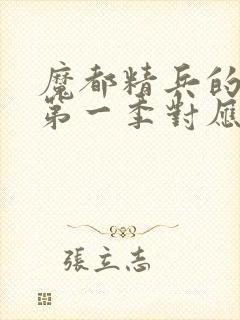 魔都精兵的
第一季對應
張立志